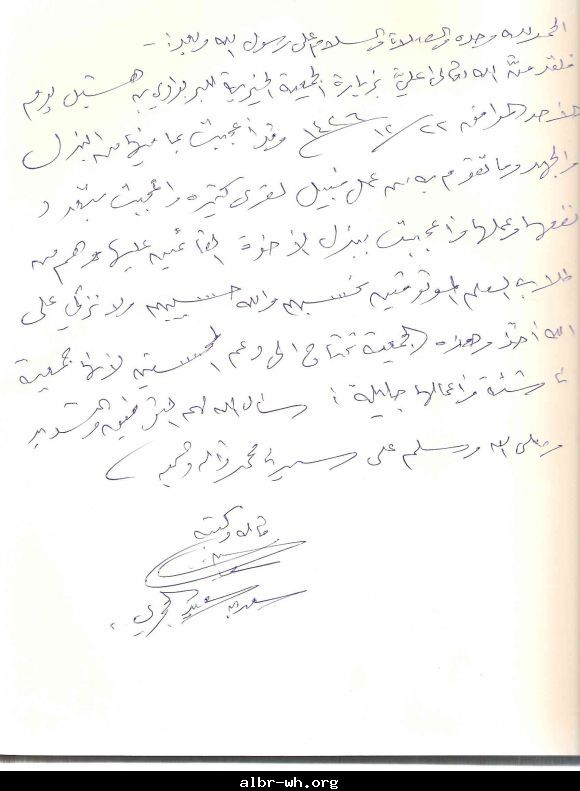 الحمد لله وحده والصلاة والسلام على رسول الله وبعد: -
فلقد منّ الله تعالى عليّ بزيارة الجمعية الخيرية للبر بوادي بن هشبل يوم
الأحد الموافق ٢٢/١٢/١٤٢٦ وقد أعجبت بما فيها من البذل
والجهد وما تقوم به من عمل نبيل لقرى كثيرة وأعجبت بتعدد
نفعها وعملها وأعجبت ببذل الأخوة القائمين عليها وهم من
طلاب العلم الموثوقين نحسبهم والله حسيبهم ولا نزكي على
الله أحداً وهذه الجمعية تحتاج الى دعم المحسنين لأنها جمعية
ناشئة وأعمالها جليلة نسأل الله لهم التوفيق والتسديد
وصلى الله وسلم على سيدنا محمد وآله وصحبه
قاله وكتبه
albr-wh.org